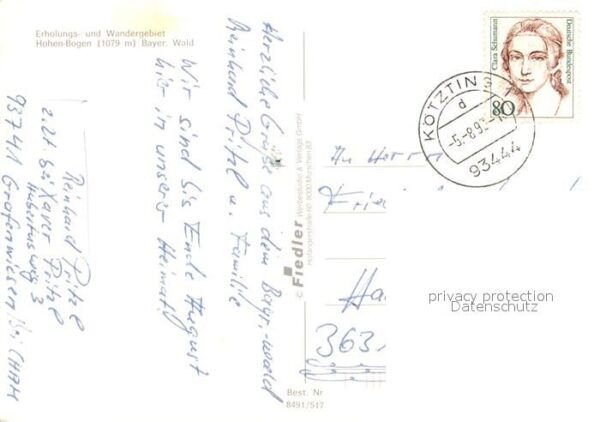 Erholungs- und Wandergebiet
Hohen-Bogen (1079 m) Bayer. Wald
Herzliche Grüße aus dem Bayr.-wald
Reinhard Pritzl u. Familie
Wir sind bis Ende August
hier in unserer Heimat!
Reinhard Pritzl
z.Zt. bei Xaver Pritzl
Hubertusweg 3
93741 Grafenwiesen, bei CHAM
© Fiedler Werbestudio & Verlags GmbH
8000 München 83
Best. Nr
8491/517
Clara Schumann
Deutsche Bundespost
80
KÖTZTING 1
d
-5.-8.93
93444
An Herrn
Ha
363
privacy protection
Datenschutz